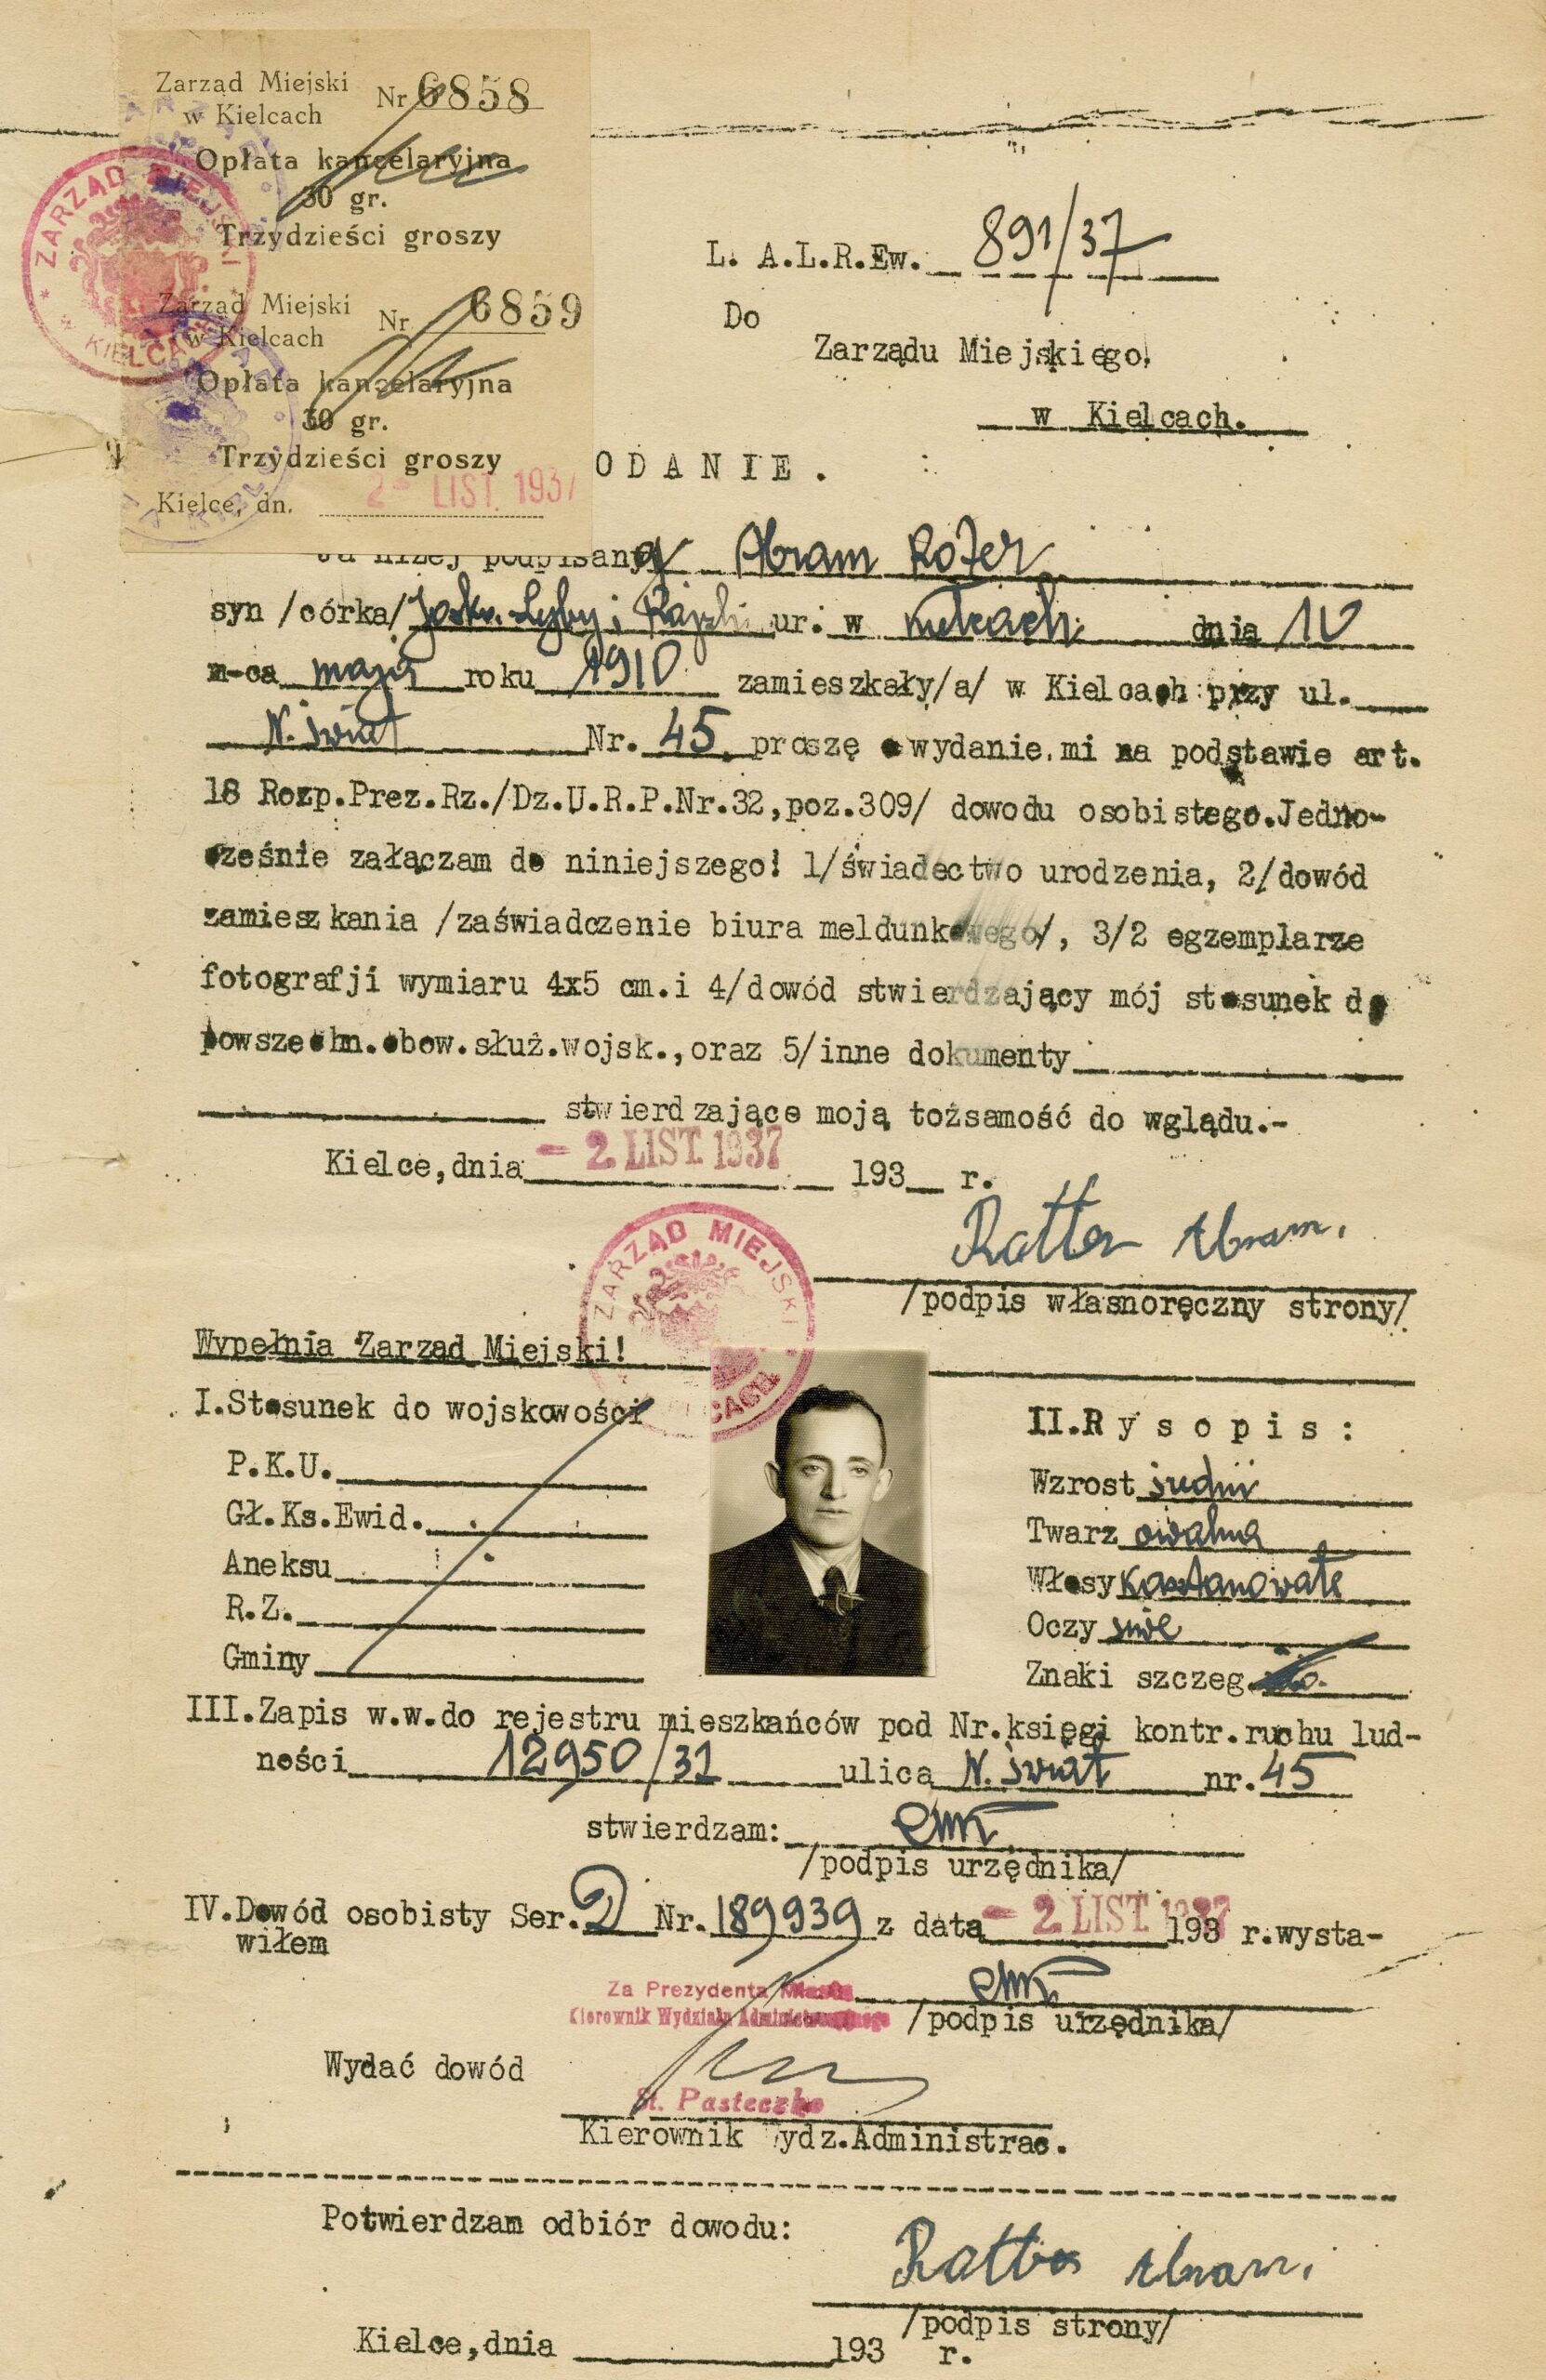 Zarząd Miejski
w Kielcach
Nr 6858
Opłata kancelaryjna
30 gr.
Trzydzieści groszy
Zarząd Miejski
w Kielcach
Nr 6859
Opłata kancelaryjna
30 gr.
Trzydzieści groszy
Kielce, dn. 2 - LIST. 1937
ZARZĄD MIEJSKI
w KIELCACH
L. A.L.R.Ew. 891/37
Do
Zarządu Miejskiego
w Kielcach.
ODANIE.
Ja niżej podpisany Abram Roter
syn /córka/ Joska-Lejby i Rajzli ur. w Kielcach dnia 10
m-ca maja roku 1910 zamieszkały/a/ w Kielcach przy ul.
N. Świat Nr. 45 proszę o wydanie mi na podstawie art.
18 Rozp.Prez.Rz./Dz.U.R.P.Nr.32,poz.309/ dowodu osobistego.Jedno-
cześnie załączam do niniejszego! 1/świadectwo urodzenia, 2/dowód
zamieszkania /zaświadczenie biura meldunkowego/, 3/2 egzemplarze
fotografji wymiaru 4x5 cm.i 4/dowód stwierdzający mój stosunek do
powszechn.obow.służ.wojsk.,oraz 5/inne dokumenty
stwierdzające moją tożsamość do wglądu.-
Kielce,dnia - 2 LIST. 1937 193 r.
Rotter Abram.
/podpis własnoręczny strony/
ZARZĄD MIEJSKI
Wypełnia Zarzad Miejski!
I.Stosunek do wojskowości
II.Rysopis:
P.K.U.
Wzrost średni
Gł.Ks.Ewid.
Twarz owalna
Aneksu
Włosy kasztanowate
R.Z.
Oczy siwe
Gminy
Znaki szczeg.
III.Zapis w.w.do rejestru mieszkańców pod Nr.księgi kontr.ruchu lud-
ności 12950/31 ulica N. Świat nr. 45
stwierdzam:
/podpis urzędnika/
IV.Dowód osobisty Ser. D Nr. 189939 z datą - 2 LIST 1937 193 r.wysta-
wiłem
Za Prezydenta Miasta
Kierownik Wydziału Administracyjnego
/podpis urzędnika/
Wydać dowód
St. Pasteczko
Kierownik Wydz.Administrac.
Potwierdzam odbiór dowodu:
Rotter Abram.
/podpis strony/
Kielce,dnia 193 r.